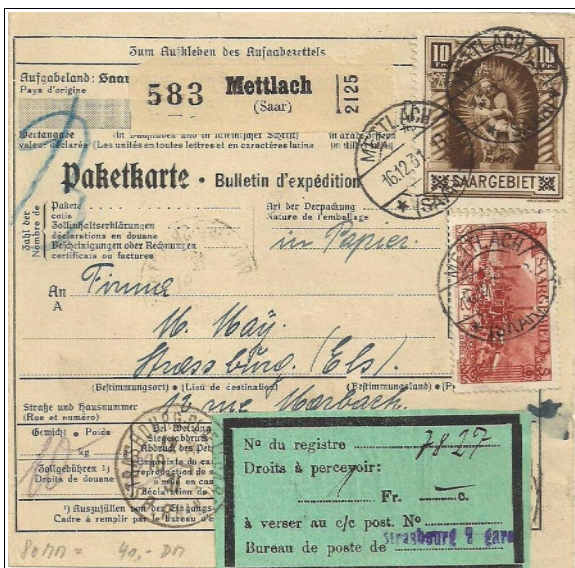 Zum Aufkleben des Aufgabezettels
Aufgabeland: Saar
Pays d'origine
583 Mettlach
(Saar)
2125
10 Fr. 10 Fr.
SAARGEBIET
METTLACH
16.12.31
(SAAR)
Wertangabe
valeur déclarée (Les unités en toutes lettres et en caractères latins
Paketkarte • Bulletin d'expédition
Zahl der
Nombre de
Pakete
colis
Zollinhaltserklärungen
déclarations en douane
Bescheinigungen oder Rechnungen
certificats ou factures
Art der Verpackung
Nature de l'emballage
in Papier.
METTLACH
(SAAR)
SAARGEBIET
An
A
Firma
M. May.
Strassburg (Els).
(Bestimmungsort) • (Lieu de destination) (Bestimmungsland) • (P
Straße und Hausnummer
(Rue et numéro)
12 rue Marbach.
Gewicht • Poids
kg
Zollgebühren ¹)
Droits de douane
Bei Wertang
Siegelabdruck
Abdruck des Pet
STRASBOURG
¹) Auszufüllen von der Eingangs-
Cadre à remplir par le bureau d'
No du registre 7827
Droits à percevoir:
Fr. c.
à verser au c/c post. No
Bureau de poste de Strasbourg 1 gare
80 MM = 40,- DM